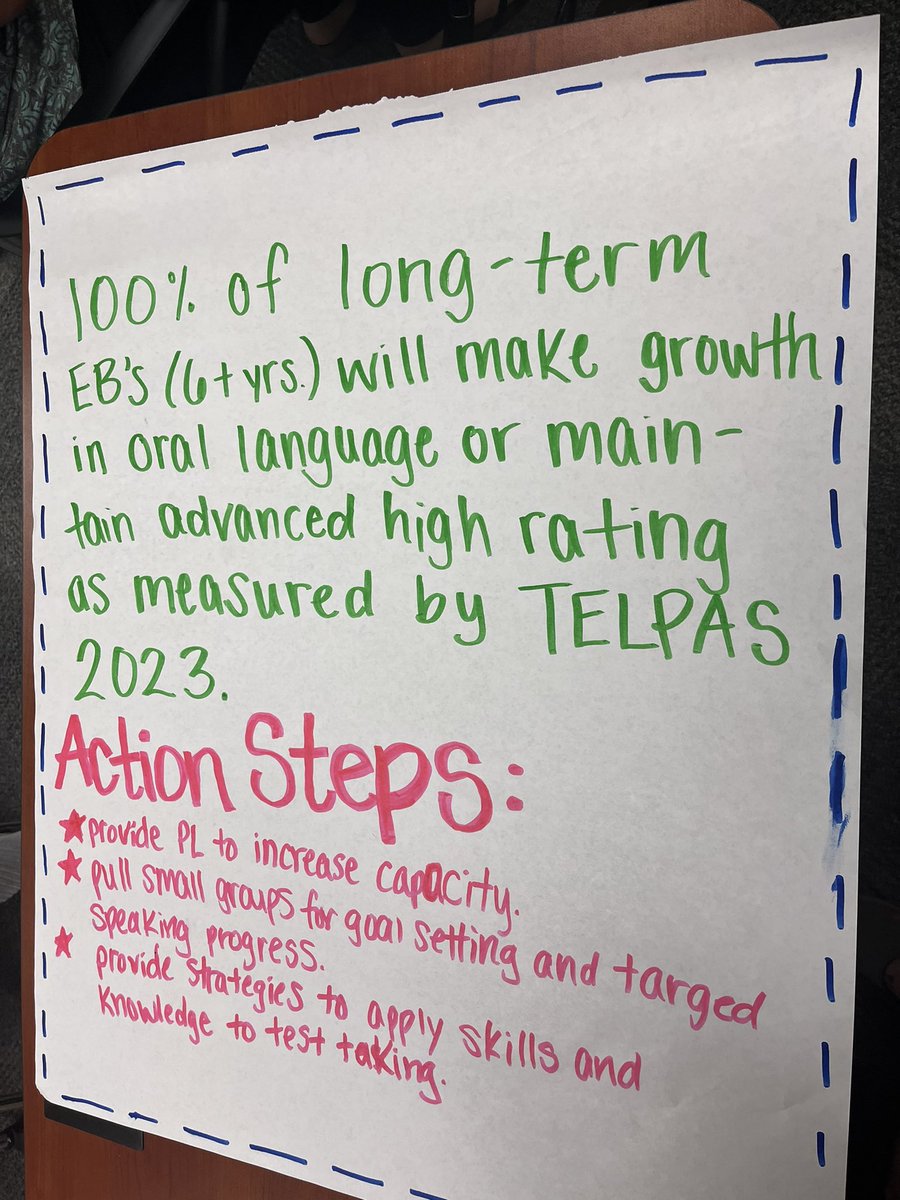 100% of long-term
EB's (6+yrs.) will make growth
in oral language or main-
tain advanced high rating
as measured by TELPAS
2023.
Action Steps:
★ provide PL to increase capacity.
★ pull small groups for goal setting and targed
speaking progress.
★ provide strategies to apply skills and
knowledge to test taking.